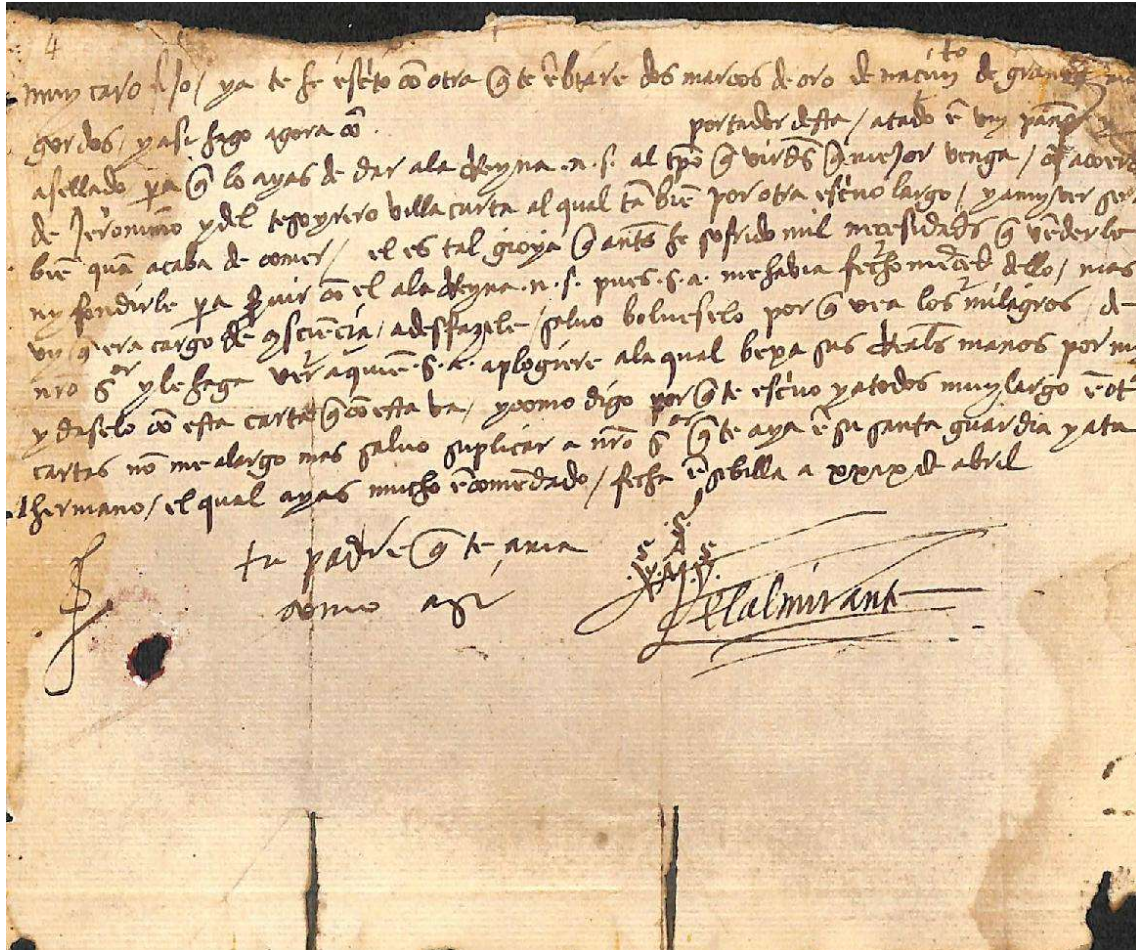 4
muy caro fijo / ya te he escrito cō otra q̄ te ēbiare dos marcos de oro de nacimyto de granos
gordos / y asi hago agora cō portador desta / atado ē vn paño y
asellado pa q̄ lo ayas de dar ala Reyna .n.s. al tp̄o q̄ virds q̄ mejor venga / cō acuerdo
de Jerónimo y del tesoyrero villacorta al qual tābiē por otra escrivo largo / y amyver sera
biē quā acaba de comer / el es tal gioya q̄ ants he sofrido mil necesidads q̄ vēderle
ny fondirle pa servir cō el ala Reyna .n.s. pues .s.a. me havia fecho merced dello / mas
vy q̄ era cargo de consciencia / adesfazele / salvo bolverselo por q̄ vea los milagros de
nr̄o sor y le haga ver aquiē .s.a. aploguiere ala qual bexa sus Reals manos por my
y daselo cō esta carta q̄ cō esta va / y como digo por q̄ te escrivo y atodos muy largo ē otras
cartas nō me alargo mas salvo suplicar a nr̄o sor q̄ te aya ē su santa guardia y atu
hermano / el qual ayas mucho ēcomēdado / fecha ē sebilla a xxix de abril
tu padre q̄ te ama
como asi
.S.
.S. A .S.
X M Y
el almirante